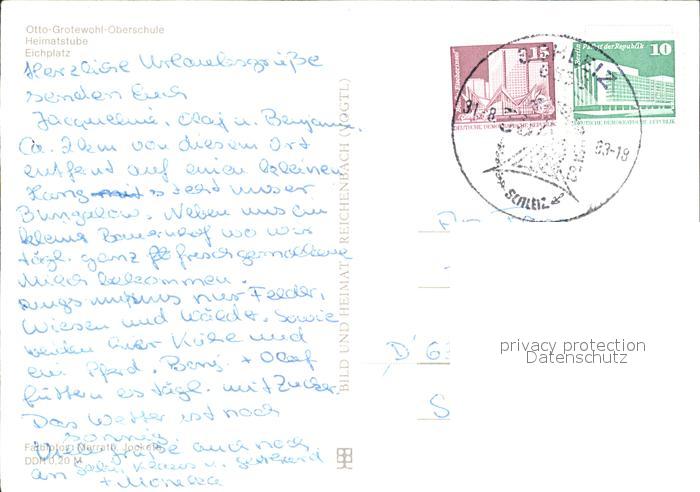 Otto-Grotewohl-Oberschule
Heimatstube
Eichplatz
Herzliche Urlaubsgrüße
senden Euch
Jacqueline, Olaf u. Benjamin.
Ca. 2 km von diesem Ort
entfernt auf einem kleinen
Hang steht unser
Bungalow. Neben uns ein
kleiner Bauernhof wo wir
tägl. ganz frischgemolkene
Milch bekommen.
Rings um uns nur Felder,
Wiesen und Wälder. Sowie
weiden hier Kühe und
ein Pferd. Benj. + Olaf
füttern es tägl. mit Zucker.
Das Wetter ist noch
sonnig
Viele Grüße auch noch
an Gabi, Klaus u. Gerhard
+ Monika
Farbfotos: Marrath, Jockela
DDR 0,20 M
BILD UND HEIMAT REICHENBACH (VOGTL)
Fischerinsel 15
DEUTSCHE DEMOKRATISCHE REPUBLIK
Berlin, Palast der Republik 10
DEUTSCHE DEMOKRATISCHE REPUBLIK
SCHLEIZ
83-18
SCHLEIZ
D 6
S
privacy protection
Datenschutz